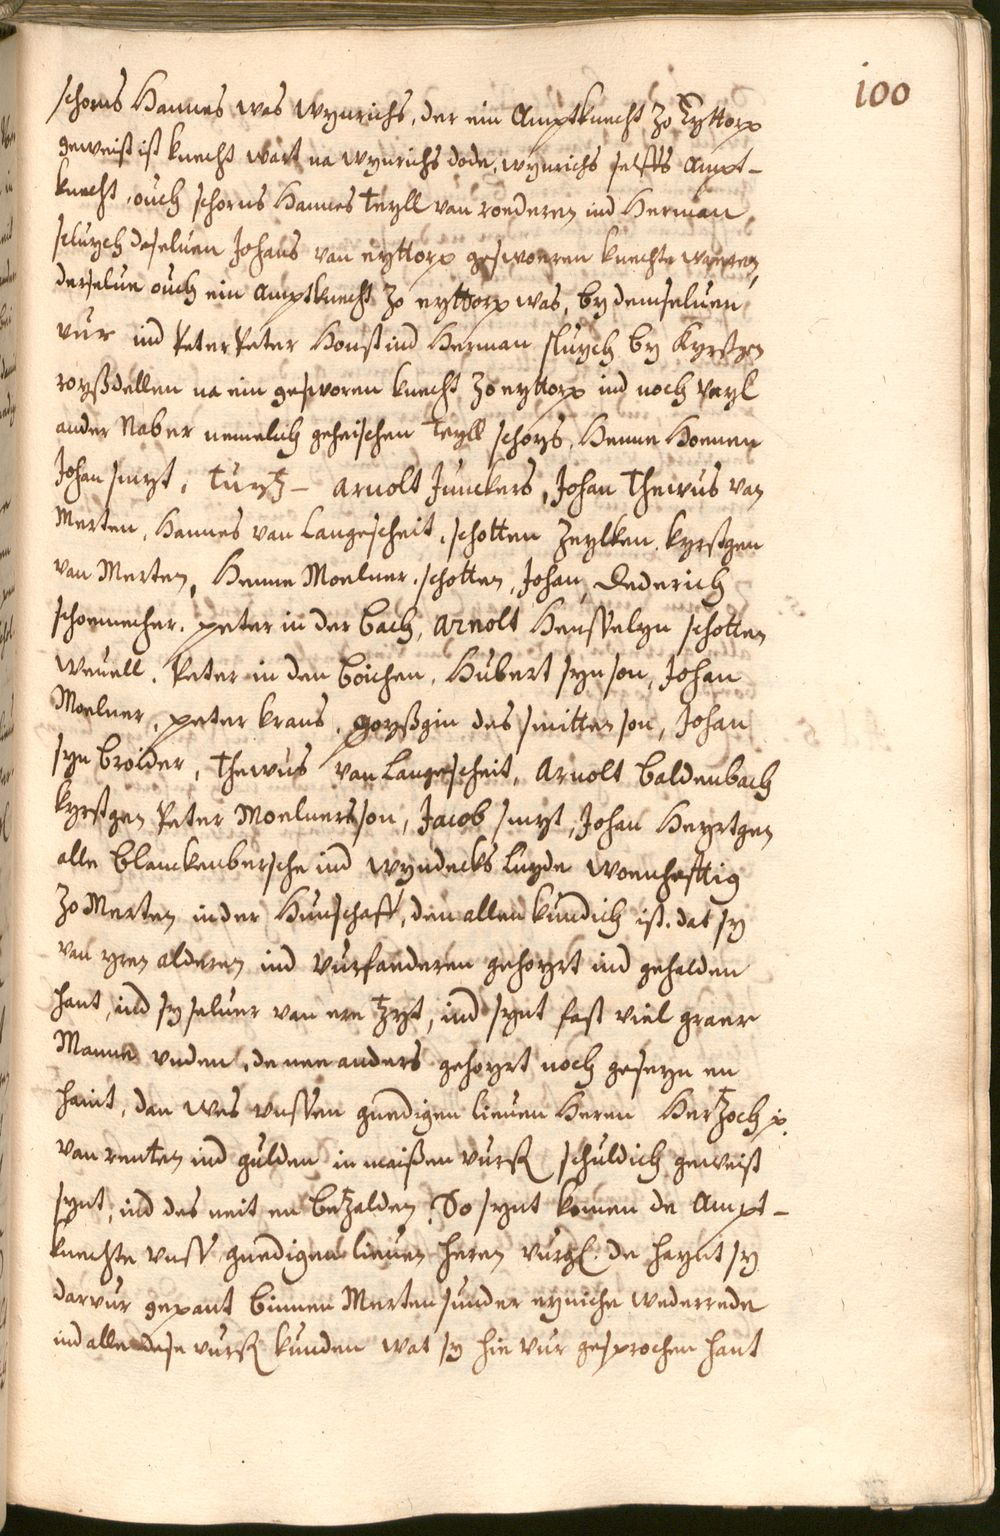 100
schorns Hannes was wynrichs, der ein Amptknecht zo Eyttorp
geweist ist knecht wart na wynrichs dode, wynrichs selffs Ampt-
knecht, ouch schorns Hannes teyll van roederen ind Herman
sluych deseluen Johans van eyttorp geswoeren knechte waeren,
derselue ouch ein Amptknecht zo eyttorp was, by demseluen
vur ind Peter Peter Houst ind Herman sluych by Kyrstgen
royßdellen na ein gesworen knecht zo eyttorp ind noch vayl
ander Naber nemelich geheischen teyll schoys, Henne Hoenen
Johan smyt, Arnolt Junckers, Johan Thewus van
Merten, Hannes van Langescheit, schotten Zeylken, kyrstgen
van Merten, Henne Moelner, schotten, Johan, Dederich
schoemecher, peter in der bach, Arnolt Hensselyn schotten
Weuell, Peter in den boichen, Hubert syn son, Johan
Moelner, peter kraus, goyßgin des smitten son, Johan
syn broider, Thewus van Langescheit, Arnolt baldenbach
kyrstgen Peter Moelners son, Jacob smyt, Johan Heyrtgen
alle blanckenbersche ind wyndecks luyde woenhefftig
zo Merten in der Hunschaff, den allen kundich ist, dat sy
van yren alderen ind vurfarderen gehoyrt ind gehalden
hant, ind sy seluer van ere tzyt, ind synt fast viel graer
Manne vnden, de nee anders gehoyrt noch geseyn en
haint, dan wes vnssen gnedigen lieuen Heren Hertzoch
van renten ind gulden in maißen vurß schuldich geweist
synt, ind des neit en betzalden, So synt komen de Ampt-
knechte vnss gnedigen lieuen heren vurgß. de haynt sy
darvur gepant binnen Merten sunder eyniche wederrede
ind alle dese vurß kunden wat sy hie vur gesprochen hant